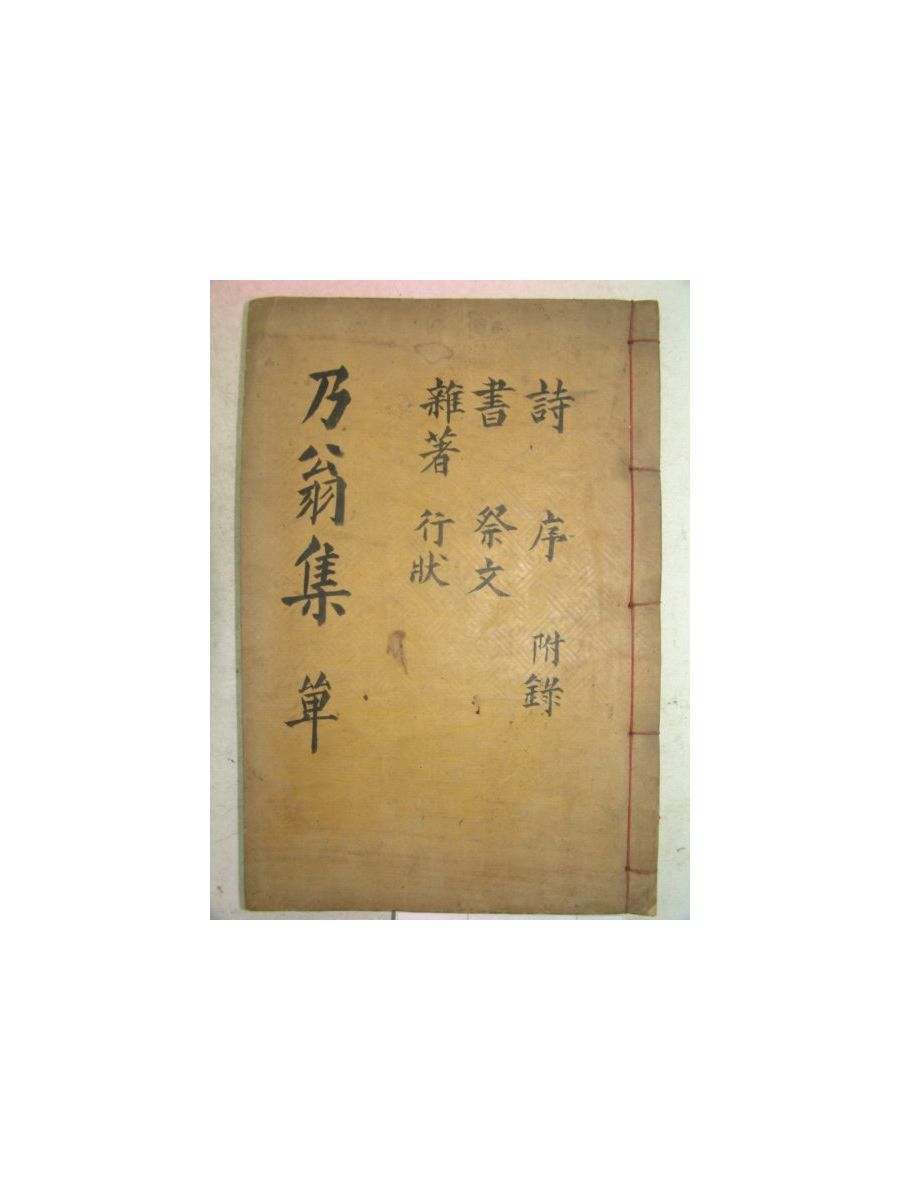 詩 序 附錄
書 祭文
雜著 行狀
乃翁集 单